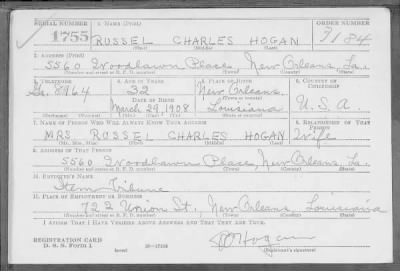 SERIAL NUMBER 1. NAME (Print) ORDER NUMBER
1755 RUSSEL CHARLES HOGAN 3184
(First) (Middle) (Last)
2. ADDRESS (Print)
5560 Woodlawn Place, New Orleans, La.
(Number and street or R. F. D. number) (Town) (County) (State)
3. TELEPHONE 4. AGE IN YEARS 5. PLACE OF BIRTH 6. COUNTRY OF CITIZENSHIP
8964 32 New Orleans
DATE OF BIRTH (Town or county)
March 29, 1908 Louisiana U.S.A.
(Mo.) (Day) (Yr.) (State or country)
7. NAME OF PERSON WHO WILL ALWAYS KNOW YOUR ADDRESS 8. RELATIONSHIP OF THAT PERSON
MRS. RUSSEL CHARLES HOGAN Wife
(Mr., Mrs., Miss) (First) (Middle) (Last)
9. ADDRESS OF THAT PERSON
5560 Woodlawn Place, New Orleans, La.
(Number and street or R. F. D. number) (Town) (County) (State)
10. EMPLOYER'S NAME
Item Tribune
11. PLACE OF EMPLOYMENT OR BUSINESS
722 Union St., New Orleans, Louisiana
(Number and street or R. F. D. number) (Town) (County) (State)
I AFFIRM THAT I HAVE VERIFIED ABOVE ANSWERS AND THAT THEY ARE TRUE.
REGISTRATION CARD Hogan
D. S. S. FORM 1 (over) 16—17105 (Registrant's signature)